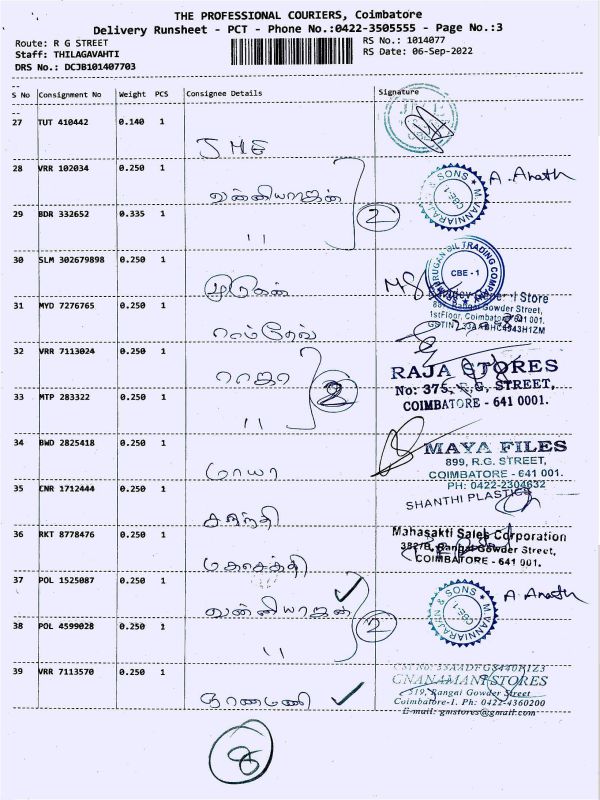 THE PROFESSIONAL COURIERS, Coimbatore
Delivery Runsheet - PCT - Phone No.:0422-3505555 - Page No.:3
Route: R G STREET RS No.: 1014077
Staff: THILAGAVAHTI RS Date: 06-Sep-2022
DRS No.: DCJB101407703
S No Consignment No Weight PCS Consignee Details Signature
27 TUT 410442 0.140 1
SME
28 VRR 102034 0.250 1
வன்னியராஜன் A. Anath
M.VANNIARAJAN & SONS CBE-1
29 BDR 332652 0.335 1
11 2
30 SLM 302679898 0.250 1
முருகன்
MURUGAN OIL TRADING COMPANY CBE - 1
31 MYD 7276765 0.250 1
Store
1stFloor, Coimbatore 641 001.
ராம்தேவ்
32 VRR 7113024 0.250 1
ராஜா
RAJA STORES
33 MTP 283322 0.250 1
No: 375, R.G. STREET,
COIMBATORE - 641 0001.
11 2
34 BWD 2825418 0.250 1
மாயா
MAYA FILES
899, R.G. STREET,
COIMBATORE - 641 001.
PH: 0422-2304632
35 CNR 1712444 0.250 1
சாந்தி
SHANTHI PLASTICS
36 RKT 8778476 0.250 1
மகாசக்தி
Mahasakti Sales Corporation
382/B, Rangai Gowder Street,
COIMBATORE - 641 001.
37 POL 1525087 0.250 1
வன்னியராஜன் A Anath
M.VANNIARAJAN & SONS CBE-1
38 POL 4599028 0.250 1
11 2
39 VRR 7113570 0.250 1
ஞானமணி
GNANAMANI STORES
519, Rangai Gowder Street
Coimbatore-1. Ph: 0422-4360200
E-mail: gmstores@gmail.com
8